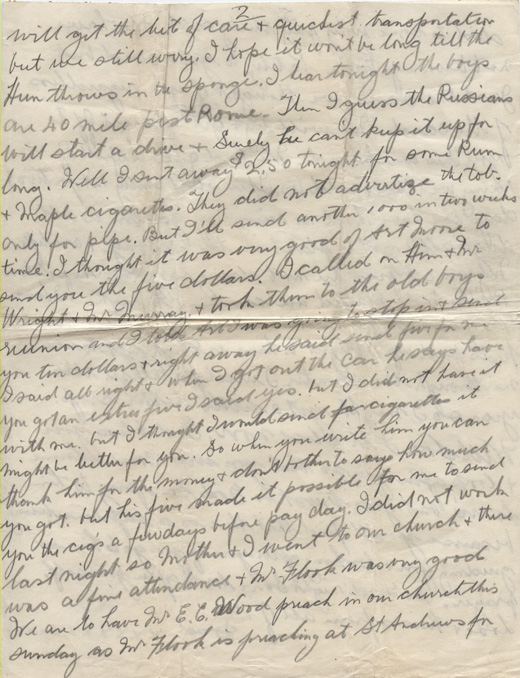 2
will get the best of care & quickest transportation
but we still worry. I hope it won't be long till the
Hun throws in the sponge. I hear tonight the boys
are 40 mile past Rome. Then I guess the Russians
will start a drive & Surely he can't keep it up for
long. Well I sent away $2.50 tonight for some Rum
& Maple cigarettes. They did not advertize the tob.
only for pipe. But I'll send another 1000 in two weeks
time. I thought it was very good of Art Moore to
send you the five dollars. I called on Him & Mr
Wright & Mr Murray & took them to the old boys
reunion and I told Art I was going to stop in & send
you ten dollars & right away he said send five for me
I said all right & when I got out the car he says have
you got an extra five I said yes. but I did not have it
with me. but I thought I would send for cigarettes it
might be better for you. So when you write him you can
thank him for the money & don't bother to say how much
you got. but his five made it possible for me to send
you the cigs a few days before pay day. I did not work
last night so Mother & I went to our church & there
was a fine attendance & Mr Flook was very good
We are to have Mr E. E. Wood preach in our church this
sunday as Mr Flook is preaching at St Andrews for